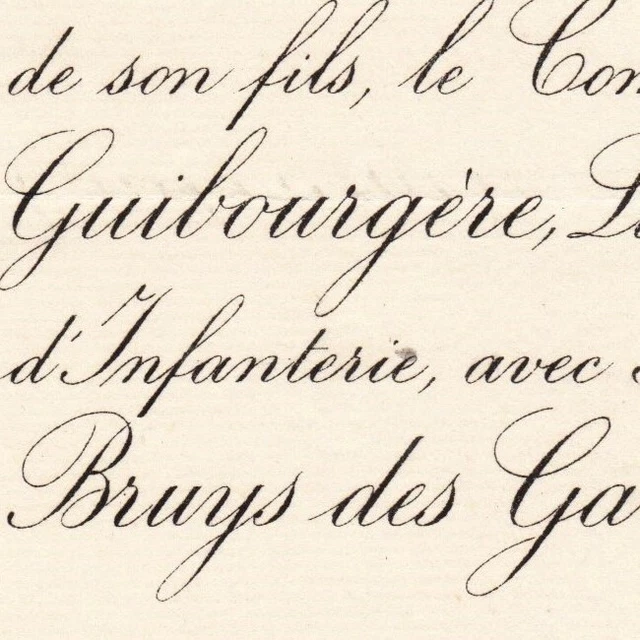 de son fils, le Com
Guibourgère, Li
d'Infanterie, avec
Bruys des Ga